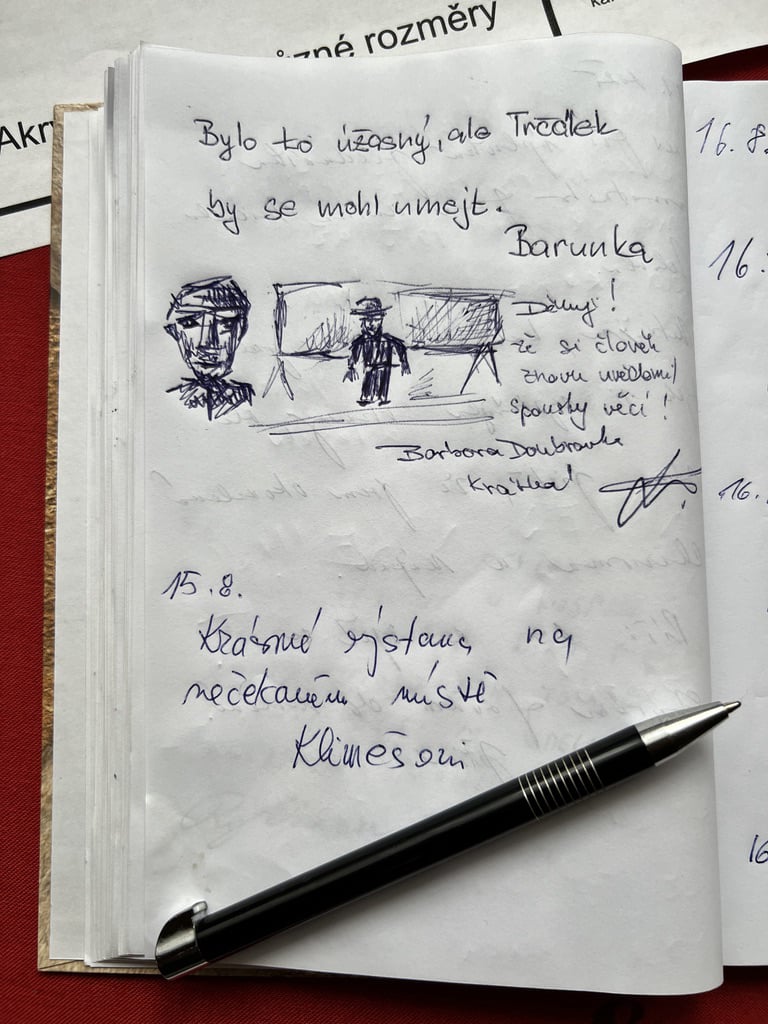 různé rozměry
Akry
Bylo to úžasný, ale Trčálek
by se mohl umejt.
Barunka
Děkuji!
že si člověk
znovu uvědomí
spousty věcí!
Barbora Doubravka
Krátká
15.8.
Krásná výstava na
nečekaném místě
Klimešovi
16.8.
16.
16.
16